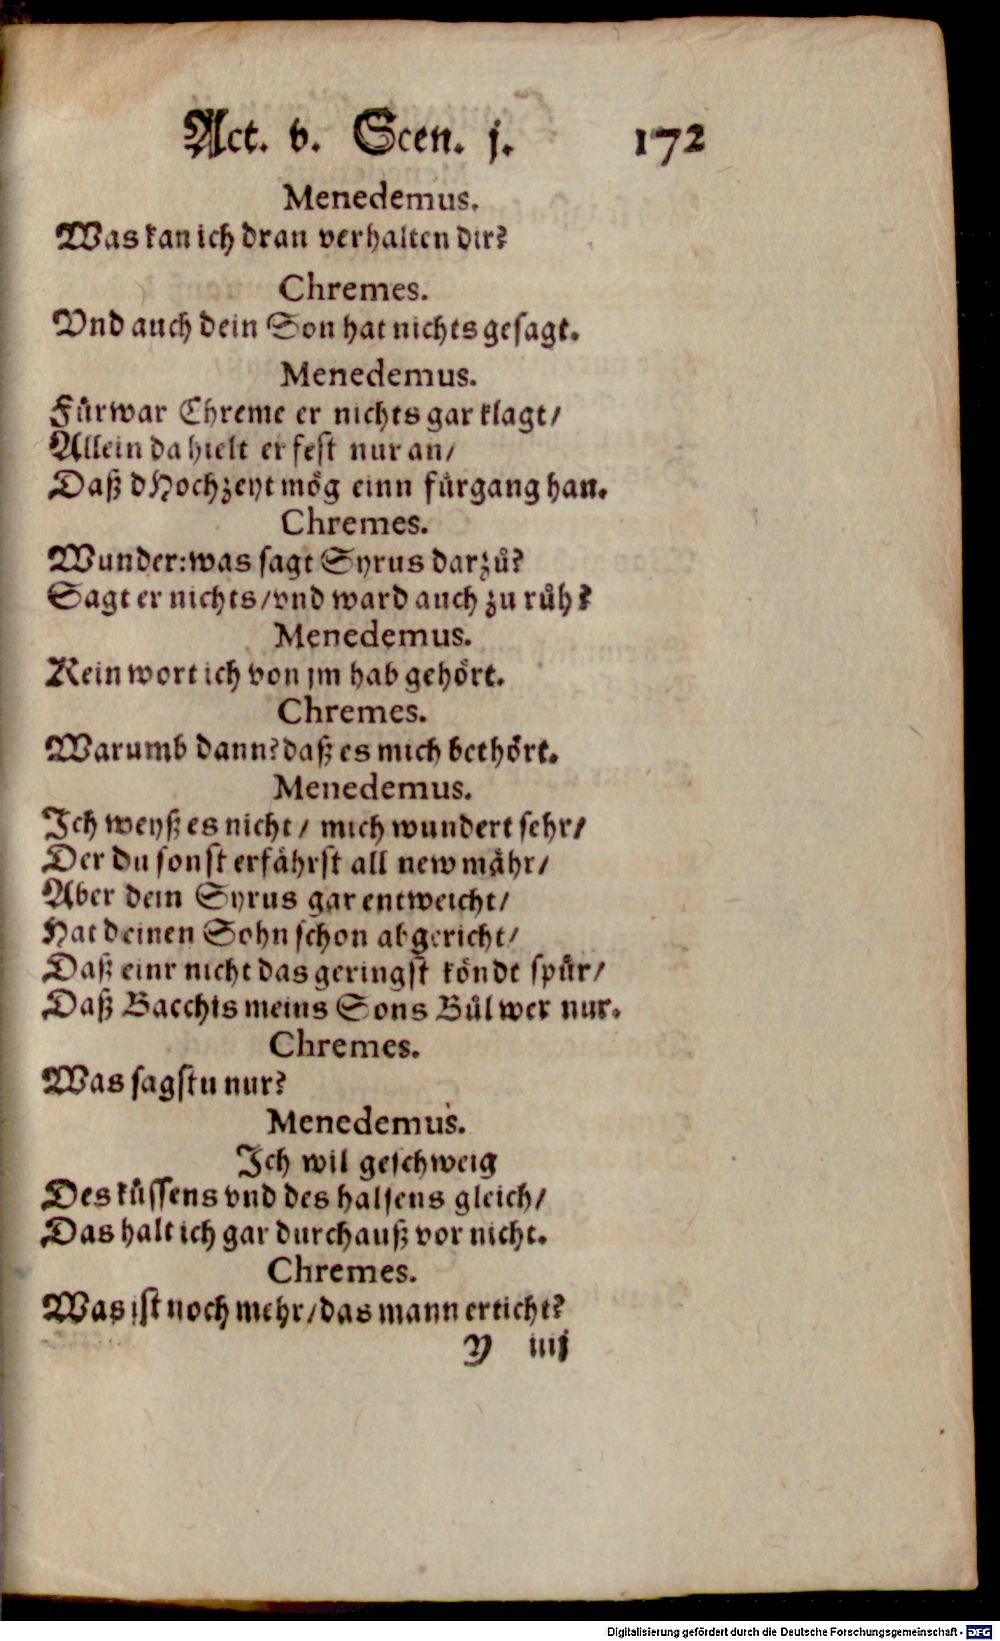 Act. v. Scen. j. 172
Menedemus.
Was kan ich dran verhalten dir?
Chremes.
Vnd auch dein Son hat nichts gesagt.
Menedemus.
Fürwar Chreme er nichts gar klagt/
Allein da hielt er fest nur an/
Daß dHochzeyt mög einn fürgang han.
Chremes.
Wunder: was sagt Syrus darzů?
Sagt er nichts/ vnd ward auch zu růh?
Menedemus.
Kein wort ich von jm hab gehört.
Chremes.
Warumb dann? daß es mich bethört.
Menedemus.
Ich weyß es nicht/ mich wundert sehr/
Der du sonst erfährst all new mähr/
Aber dein Syrus gar entweicht/
Hat deinen Sohn schon abgericht/
Daß einr nicht das geringst köndt spür/
Daß Bacchis meins Sons Bůl wer nur.
Chremes.
Was sagstu nur?
Menedemus.
Ich wil geschweig
Des küssens vnd des halsens gleich/
Das halt ich gar durchauß vor nicht.
Chremes.
Was ist noch mehr/ das mann erticht?
Y iiij
Digitalisierung gefördert durch die Deutsche Forschungsgemeinschaft - DFG